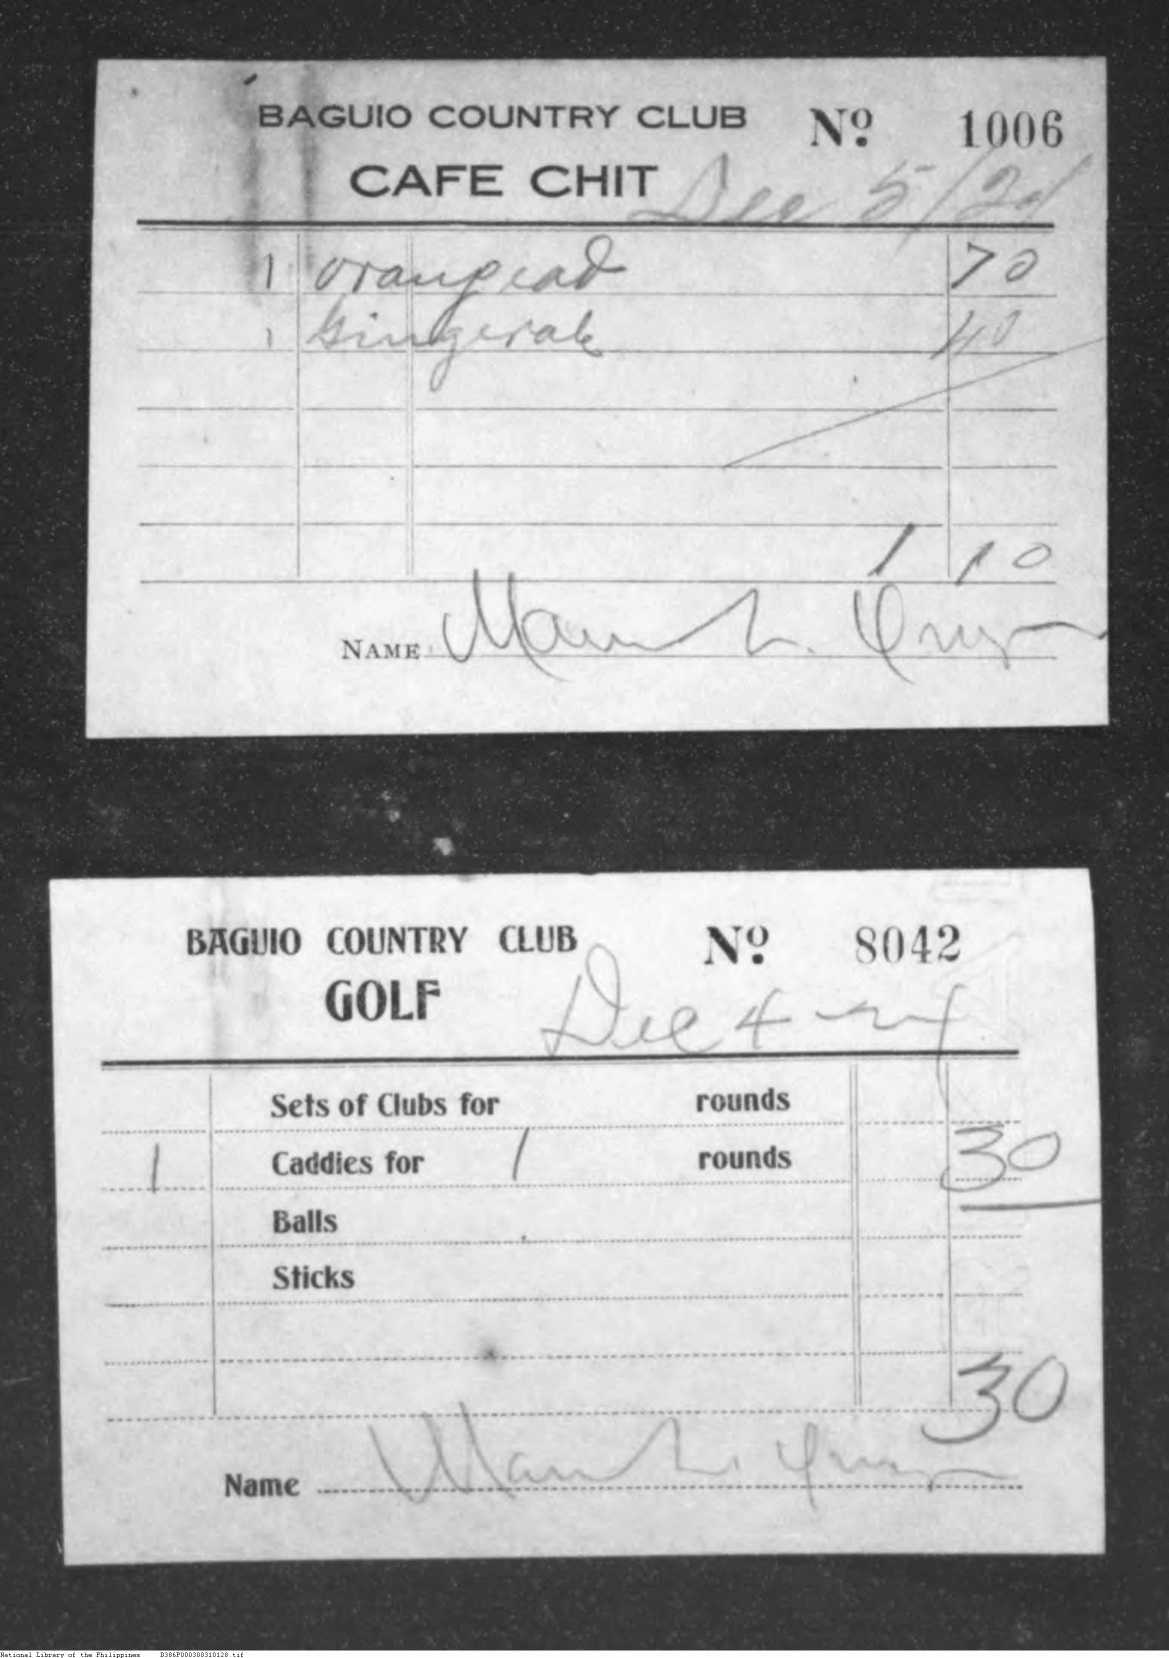 BAGUIO COUNTRY CLUB Nº 1006
CAFE CHIT
Dec 5/
1 orangead 70
1 Gingerale 40
1 10
NAME Manuel L. Quezon
BAGUIO COUNTRY CLUB Nº 8042
GOLF
Dec 4
Sets of Clubs for rounds
1 Caddies for 1 rounds 30
Balls
Sticks
30
Name Manuel L. Quezon
National Library of the Philippines